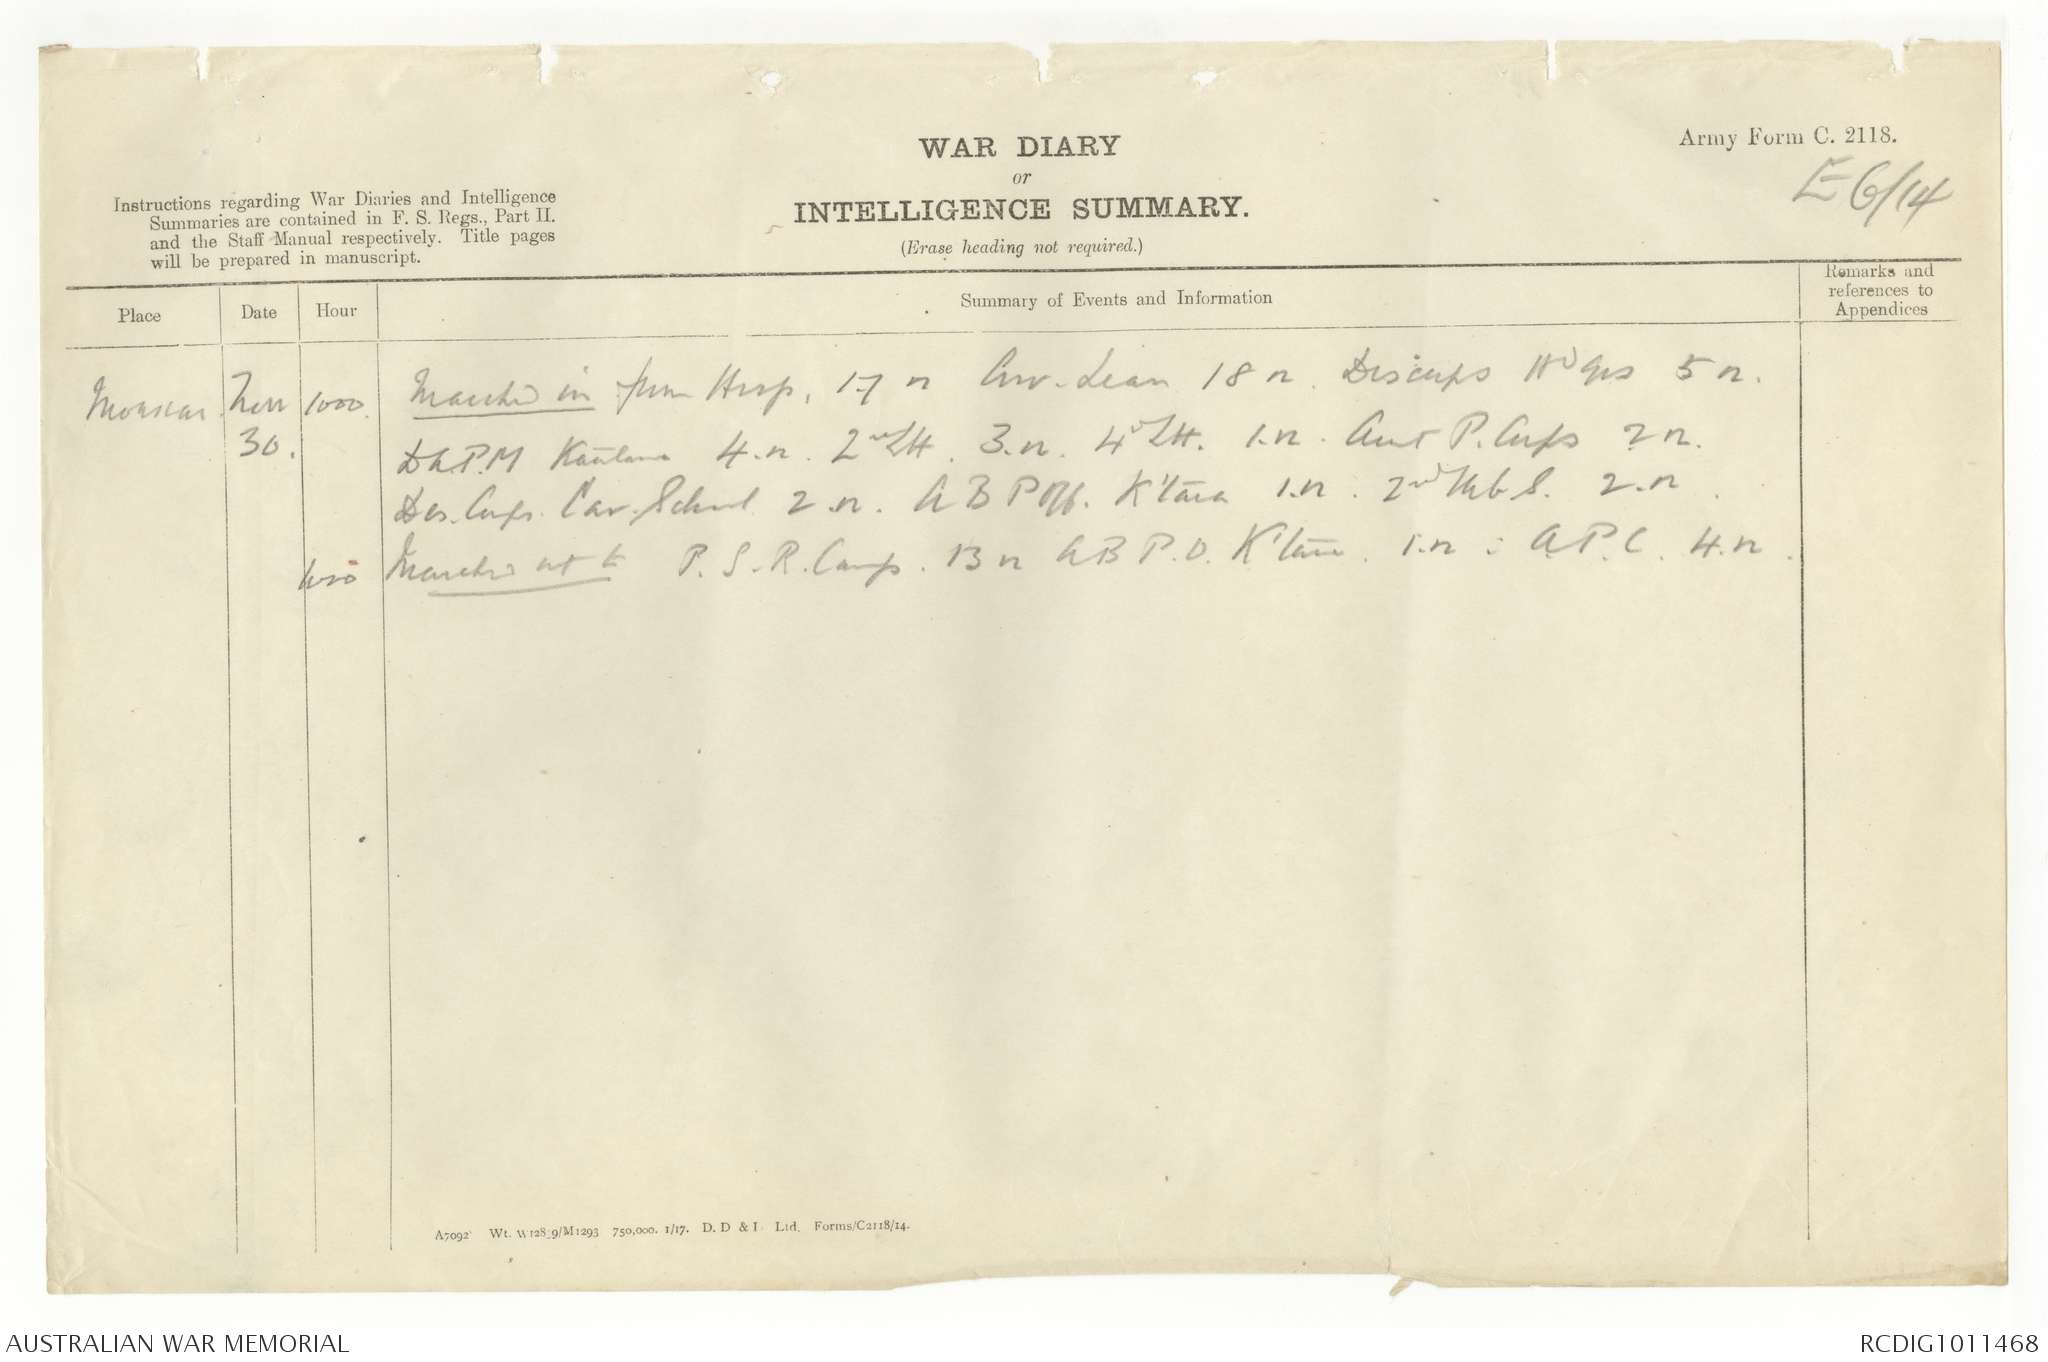 WAR DIARY
or
INTELLIGENCE SUMMARY.
(Erase heading not required.)
Army Form C. 2118.
E 6/14
Instructions regarding War Diaries and Intelligence
Summaries are contained in F. S. Regs., Part II.
and the Staff Manual respectively. Title pages
will be prepared in manuscript.
Place
Date
Hour
Summary of Events and Information
Remarks and
references to
Appendices
Moascar Nov 1000. Marched in from Hosp. 17 n 18 n. Descorps Hd Qrs 5 n.
30. 4.n. 2nd LH. 3.n. 4th LH. 1.n. Aust P. Corps 2 n.
Des. Corps. Cav. School 2.n. A B P Off. K'tara 1.n. 2nd S. 2.n.
Marched out to P. S. R. Camp. 13 n A B P. O. K'tara. 1.n. A.P.C. 4.n.
A7092 Wt. W128_9/M1293 750,000. 1/17. D. D & L Ltd. Forms/C2118/14.
AUSTRALIAN WAR MEMORIAL
RCDIG1011468